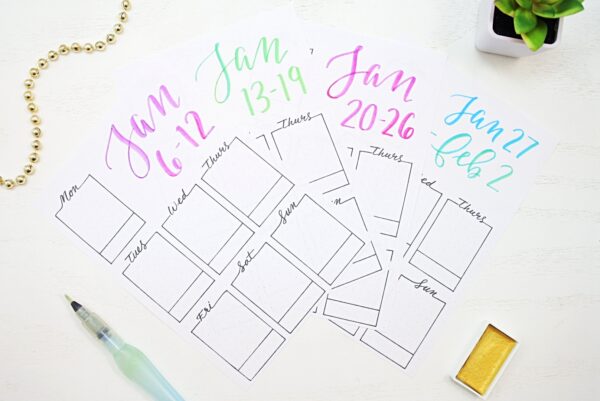 Jan
6-12
Mon
Tues
Wed
Thurs
Fri
Sat
Sun
Jan
13-19
Thurs
Jan
20-26
Thurs
Jan 27
-Feb 2
Thurs
Sun